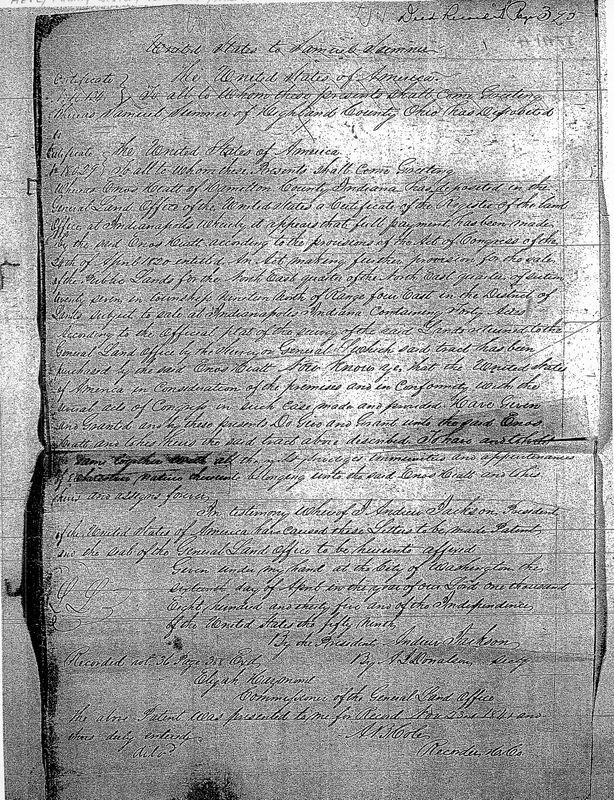 Deed Record Page 375
United States to Samuel
The United States of America
Certificate
To all to Whom these presents Shall Come Greeting
Whereas Samuel of Highland County Ohio has Deposited
to
Certificate The United States of America
To all to Whom these Presents Shall Come Greeting
Whereas Enos Hiatt of Hamilton County Indiana has deposited in the
General Land Office of the United States a Certificate of the Register of the Land
Office at Indianapolis whereby it appears that full payment has been made
by the said Enos Hiatt according to the provisions of the Act of Congress of the
24th of April 1820 entitled An Act making further provision for the sale
of the Public Lands for the North East quarter of the North East quarter of section
twenty seven in township nineteen North of Range four East in the District of
Lands subject to sale at Indianapolis Indiana Containing forty acres
according to the Official plat of the survey of the said Lands returned to the
General Land Office by the Surveyor General Which said tract has been
purchased by the said Enos Hiatt Now know ye, that the United States
of America in Consideration of the premises and in Conformity with the
several acts of Congress in such case made and provided Have Given
and Granted and by these presents Do Give and Grant unto the said Enos
Hiatt and to his heirs the said tract above described To have and to hold
the same together with all the rights privileges immunities and appurtenances
of whatsoever nature thereunto belonging unto the said Enos Hiatt and his
heirs and assigns forever
In testimony Whereof I Andrew Jackson President
of the United States of America have caused these Letters to be made Patent
and the Seal of the General Land Office to be hereunto affixed
Given under my hand at the City of Washington the
sixteenth day of April in the year of our Lord one thousand
Eight hundred and thirty five and of the Independence
of the United States the fifty ninth
By the President Andrew Jackson
Recorded vol 36 Page By A J Donelson secy
Elijah Hayward
Commissioner of the General Land Office
the above Patent was presented to me for Record Nov 23rd and
duly entered
Recorder H Co